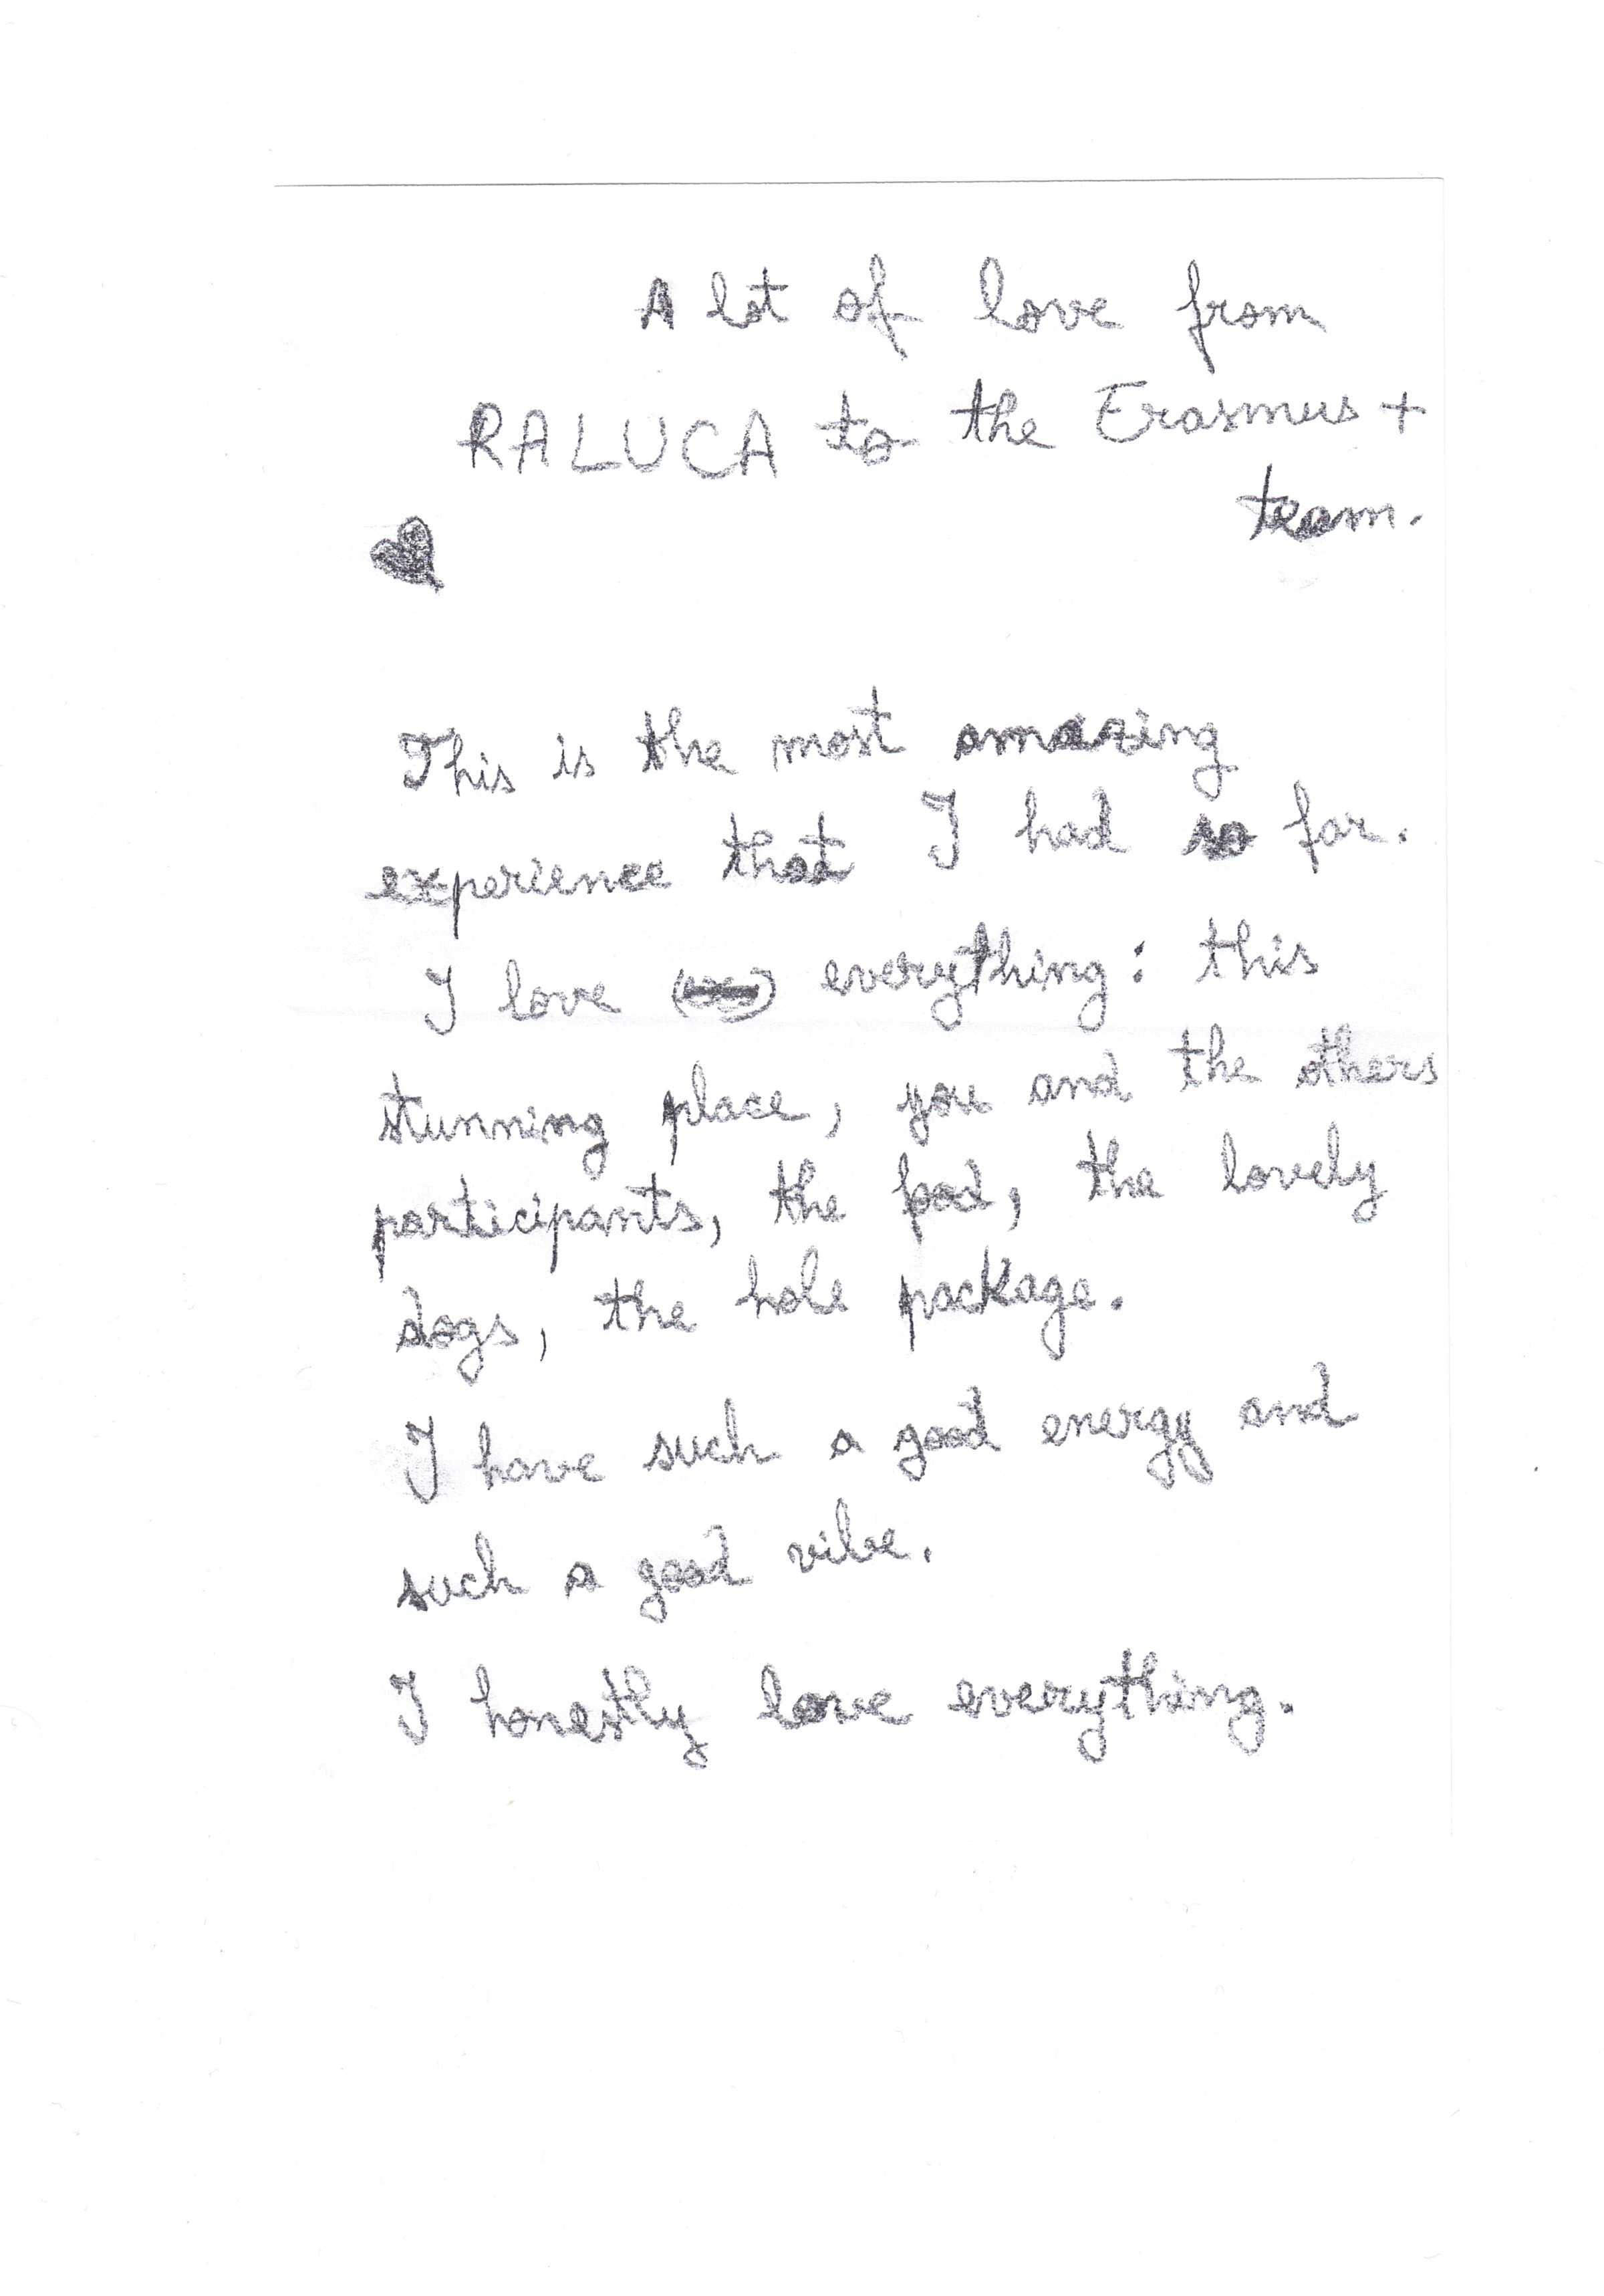 A lot of love from
RALUCA to the Erasmus +
team.
This is the most amazing
experience that I had so far.
I love everything: this
stunning place, you and the others
participants, the food, the lovely
dogs, the hole package.
I have such a good energy and
such a good vibe.
I honestly love everything.